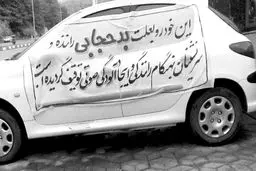 این خودرو بعلت بدحجابی راننده و
سرنشینان هنگام رانندگی ایجاد آلودگی صوتی توقیف گردیده است